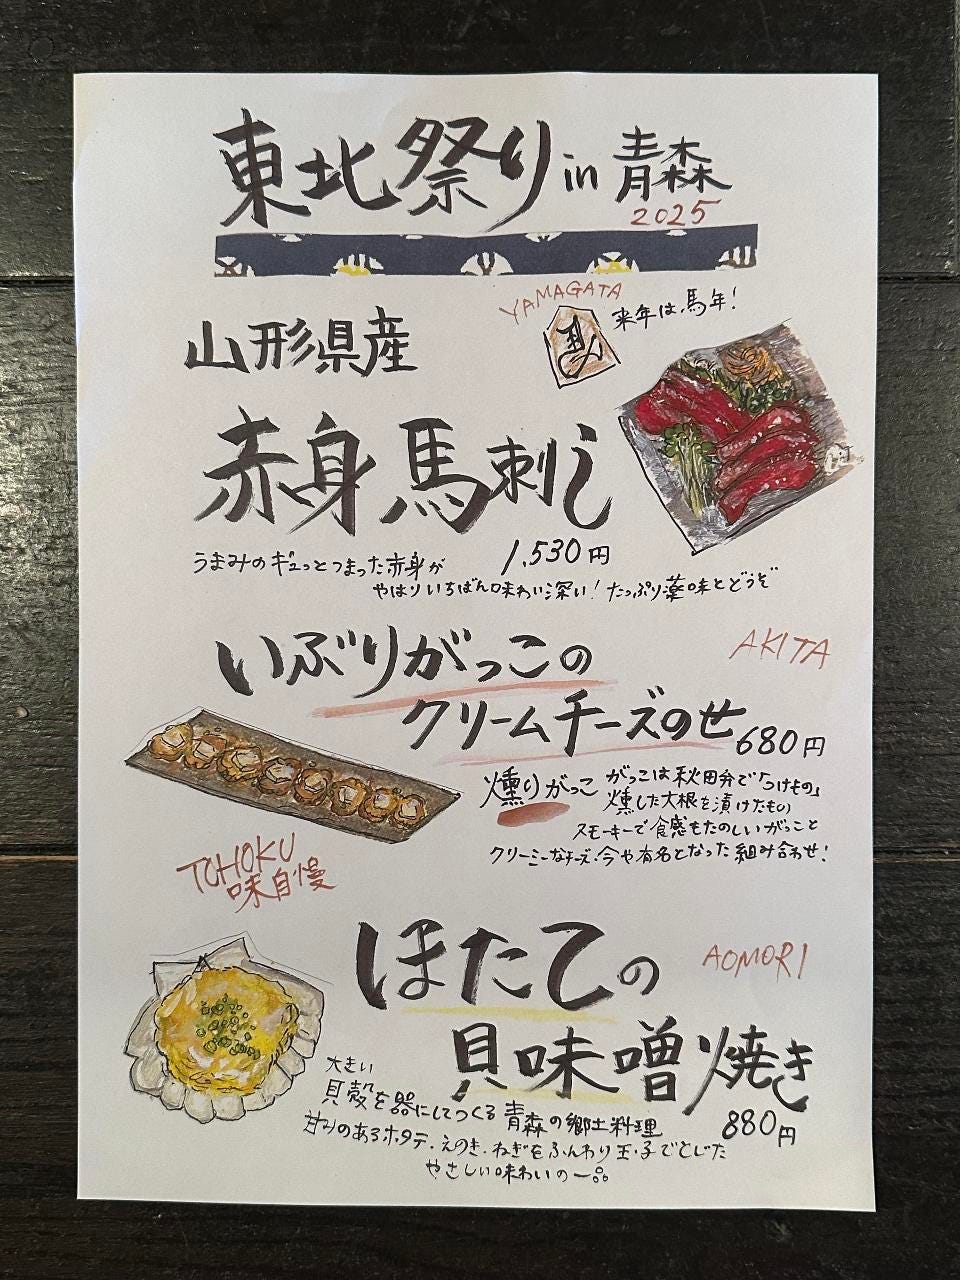 東北祭り in 青森
2025
YAMAGATA
来年は、馬年!
山形県産
赤身馬刺し
1,530円
うまみのギュっとつまった赤身が
やはりいちばん味わい深い!たっぷり薬味とどうぞ
AKITA
いぶりがっこの
クリームチーズのせ
680円
燻りがっこ
がっこは秋田弁で「つけもの」
燻した大根を漬けたもの
スモーキーで食感もたのしいがっこと
クリーミーなチーズ、今や有名となった組み合わせ!
TOHOKU
味自慢
AOMORI
ほたての
貝味噌焼き
880円
大きい
貝殻を器にしてつくる青森の郷土料理
甘みのあるホタテ、えのき、ねぎをふんわり玉子でとじた
やさしい味わいの一品